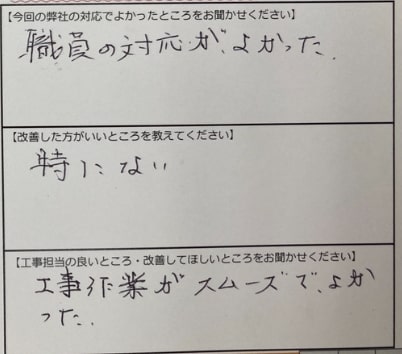 【今回の弊社の対応でよかったところをお聞かせください】
職員の対応が、よかった.
【改善した方がいいところを教えてください】
特にない
【工事担当の良いところ・改善してほしいところをお聞かせください】
工事作業がスムーズで、よか
った.